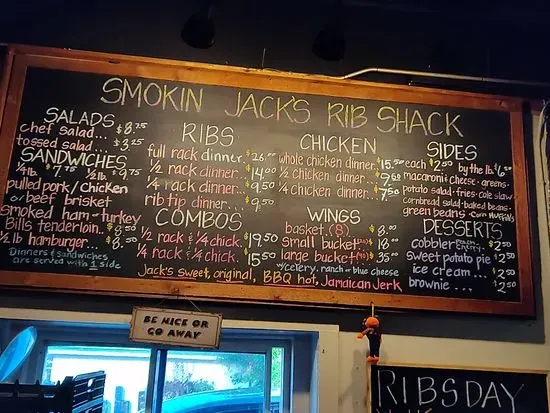 SMOKIN JACK'S RIB SHACK
SALADS
chef salad... $8.75
tossed salad... $3.25
SANDWICHES
1/4 lb. $7.75 1/2 lb. $9.75
pulled pork/chicken
or beef brisket
smoked ham-turkey
Bills tenderloin.. $8.50
1/2 lb hamburger... $8.50
Dinners & Sandwiches
are served with 1 side
RIBS
full rack dinner. $26.00
1/2 rack dinner... $14.00
1/4 rack dinner... $9.00
rib tip dinner... $9.50
COMBOS
1/2 rack & 1/4 chick. $19.50
1/4 rack & 1/4 chick. $15.50
CHICKEN
whole chicken dinner. $15.50
1/2 chicken dinner... $9.50
1/4 chicken dinner... $7.50
WINGS
basket (8) $8.00
small bucket $18.00
large bucket $35.00
w/celery, ranch or blue cheese
Jack's sweet, original, BBQ hot, Jamaican Jerk
SIDES
each $2.50 by the lb. $6.50
macaroni cheese - greens -
potato salad - fries - cole slaw
cornbread salad - baked beans -
green beans - corn muffins
DESSERTS
cobbler $2.50
sweet potato pie $2.50
ice cream ... $2.50
brownie ... $2.50
BE NICE OR
GO AWAY
RIBSDAY